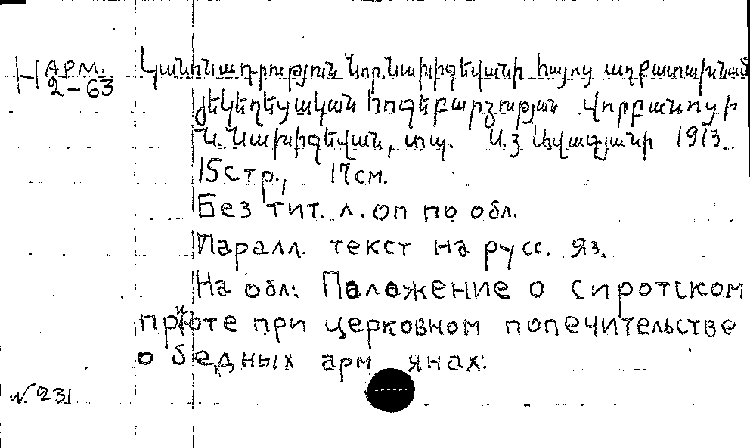 АРМ.
2-63
Կանոնադրություն Նոր Նախիջևանի հայոց աղքատախնամ
եկեղեցական հոգեբարձության վորբանոցի
Ն. Նախիջևան, տպ. Ս. Յ. Ավագյանի 1913.
15 стр., 17 см.
Без тит. л. оп по обл.
Паралл. текст на русс. яз.
На обл: Положение о сиротском
приюте при церковном попечительстве
о бедных арм янах.
N. 231